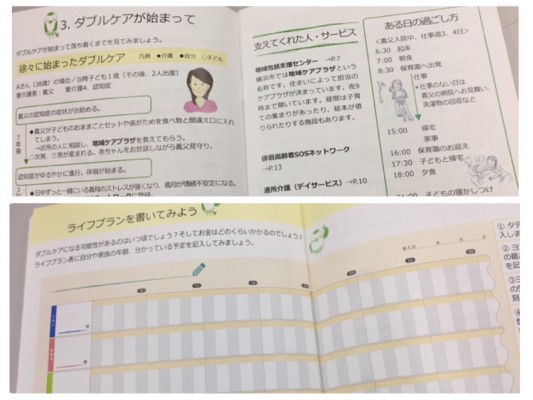 3. ダブルケアが始まって
ダブルケアが始まって落ち着くまでを見てみましょう。
徐々に始まったダブルケア
凡例 ◆介護 ♣自分 ○子ども
Aさん（38歳）の場合／当時子ども1歳（その後、2人出産）
要介護者：義父　要介護4、認知症
義父の認知症の症状が出始める。
◆義父が子どものおままごとセットや歯がためを食べ物と間違え口に入れ
てしまう。
→近所の人に相談し、地域ケアプラザを教えてもらう。
○次男、三男が産まれる。赤ちゃんをお世話しながら義父見守り。
認知症がゆるやかに進行。徘徊が始まる。
◆日中ずっと一緒にいる義母のストレスが強くなり、義母が情緒不安定になる。
支えてくれた人・サービス
地域包括支援センター →P.7
横浜市では地域ケアプラザという
名称です。住まいによって担当の
ケアプラザが決まっています。夜9
時まで開いています。昼間は子育
ての集まりがあったり、絵本が借
りられたりする施設もあります。
徘徊高齢者SOSネットワーク
→P.13
通所介護（デイサービス）→P.10
ある日の過ごし方
<義父入院中、仕事週3、4日>
6:30 起床
7:00 朝食
8:30 保育園へ出発
仕事
＊仕事のない日は
義父の病院へお見舞い、
洗濯物の回収など
15:00 帰宅
家事
16:00 保育園のお迎え
17:30 子どもと帰宅
18:00 夕食
子どもの寝かしつけ
ライフプランを書いてみよう
ダブルケアになる可能性があるのはいつ頃でしょう？そしてお金はどのくらいかかるのでしょう？
ライフプラン表に自分や家族の年齢、分かっている予定を記入してみましょう。